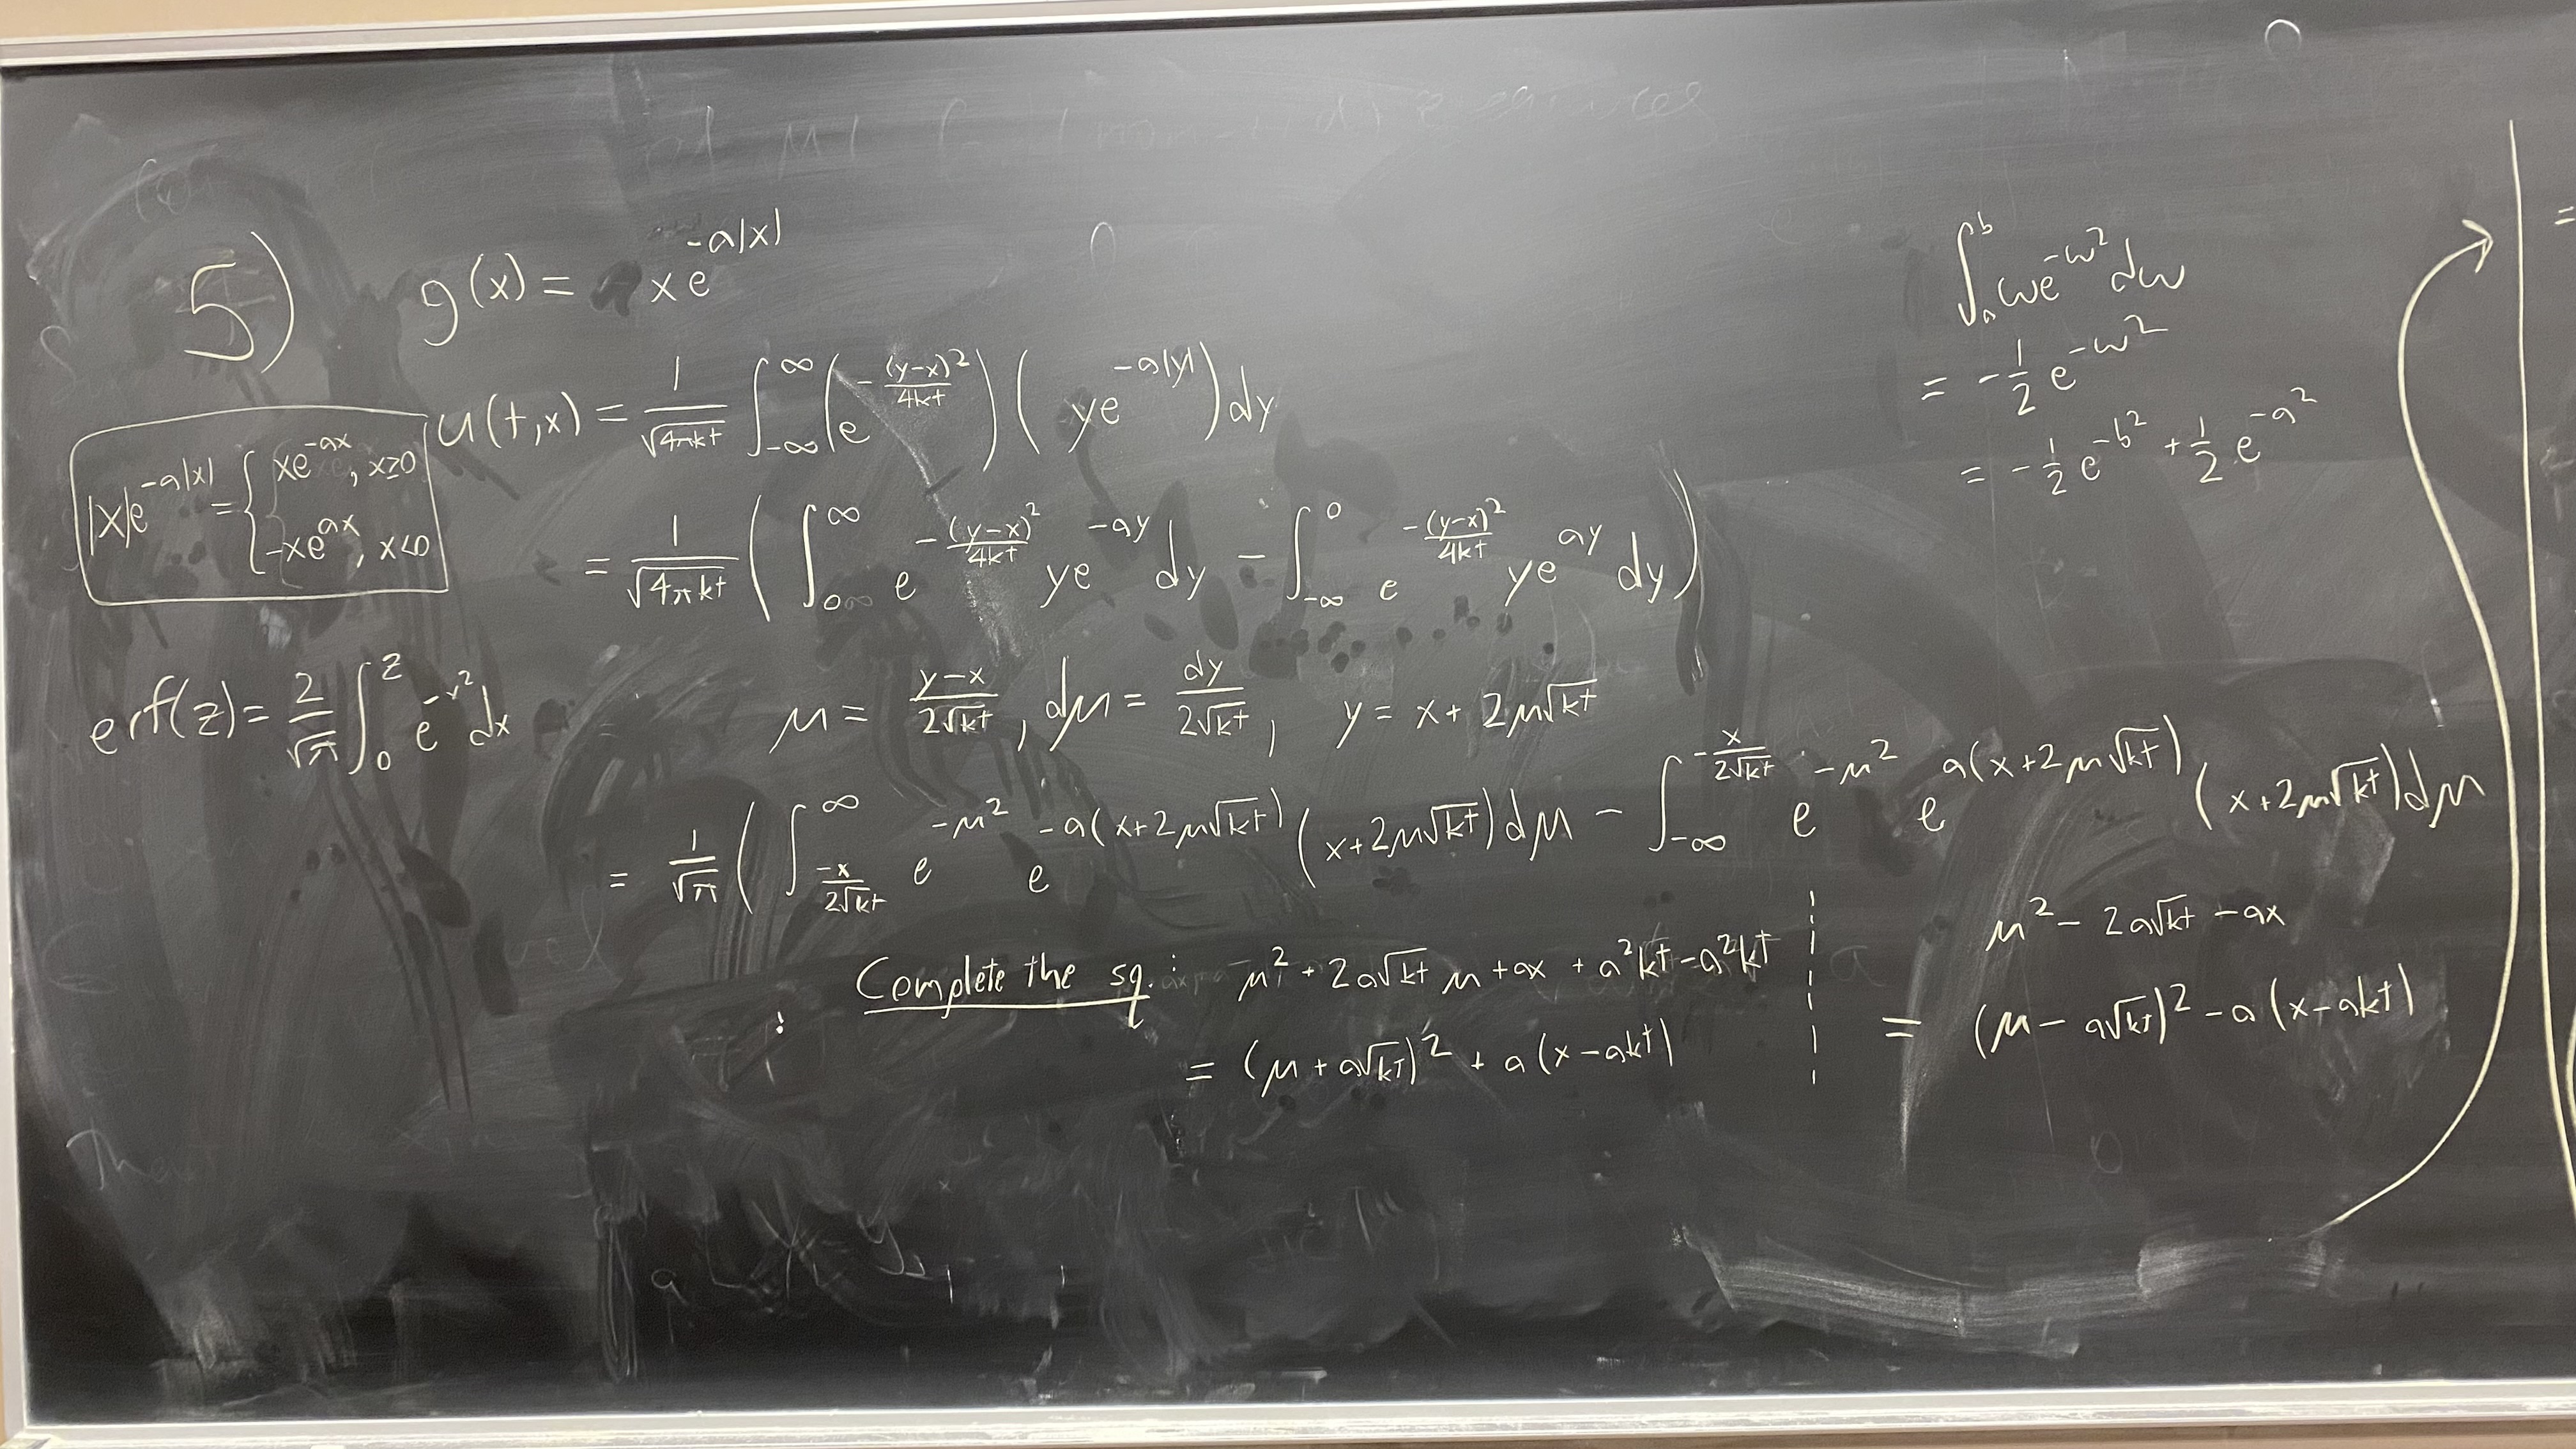 5) g(x) = xe^{-a|x|}
u(t,x) = \frac{1}{\sqrt{4πkt}} \int_{-∞}^{∞} (e^{-\frac{(y-x)^2}{4kt}}) (ye^{-a|y|}) dy
|x|e^{-a|x|} = { xe^{-ax}, x≥0
-xe^{ax}, x<0
= \frac{1}{\sqrt{4πkt}} ( \int_{0}^{∞} e^{-\frac{(y-x)^2}{4kt}} ye^{-ay} dy - \int_{-∞}^{0} e^{-\frac{(y-x)^2}{4kt}} ye^{ay} dy )
erf(z) = \frac{2}{\sqrt{π}} \int_0^z e^{-x^2} dx
μ = \frac{y-x}{2\sqrt{kt}}, dμ = \frac{dy}{2\sqrt{kt}}, y = x + 2μ\sqrt{kt}
= \frac{1}{\sqrt{π}} ( \int_{\frac{-x}{2\sqrt{kt}}}^{∞} e^{-μ^2} e^{-a(x+2μ\sqrt{kt})} (x+2μ\sqrt{kt}) dμ - \int_{-∞}^{-\frac{x}{2\sqrt{kt}}} e^{-μ^2} e^{a(x+2μ\sqrt{kt})} (x+2μ\sqrt{kt}) dμ
Complete the sq.: μ^2 + 2a\sqrt{kt} μ + ax + a^2kt - a^2kt
= (μ + a\sqrt{kt})^2 + a(x - akt)
μ^2 - 2a\sqrt{kt} - ax
= (μ - a\sqrt{kt})^2 - a(x - akt)
\int_a^b we^{-w^2} dw
= -\frac{1}{2} e^{-w^2}
= -\frac{1}{2} e^{-b^2} + \frac{1}{2} e^{-a^2}
=